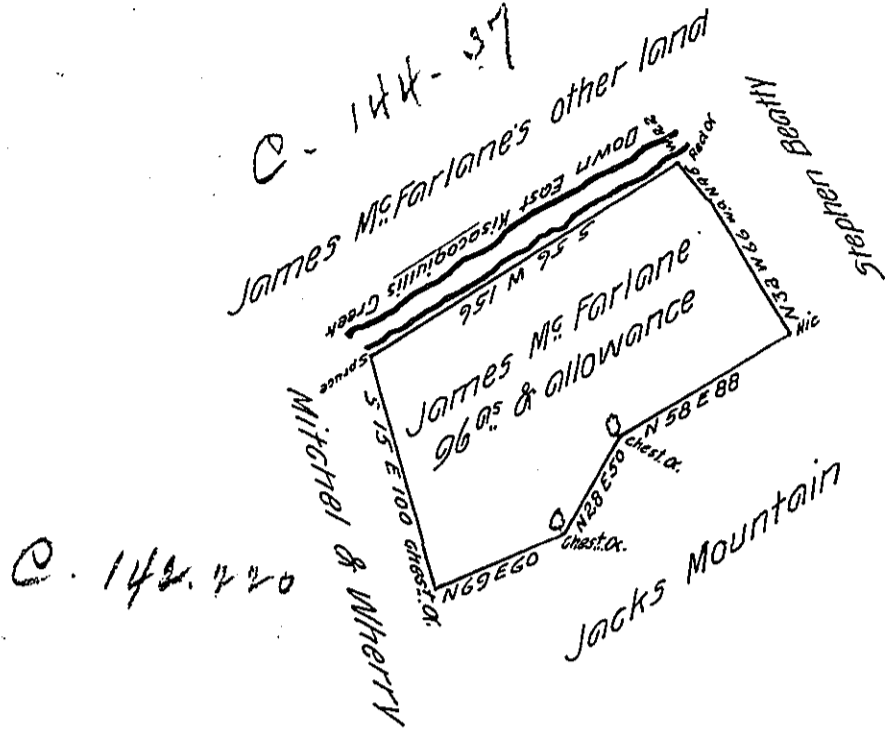 C - 144 - 37
James McFarlane's other land
Stephen Beatty
Down East Kisacoquillis Creek
Red O.
S 56 W 156
N 32 W 66
Spruce
Hic
James McFarlane
96 as & allowance
S 15 E 100
N 58 E 88
Chest. O.
N 28 E 50
Chest. O.
N 69 E 60
Chest. O.
Mitchel & Wherry
Jacks Mountain
C. 142. 220